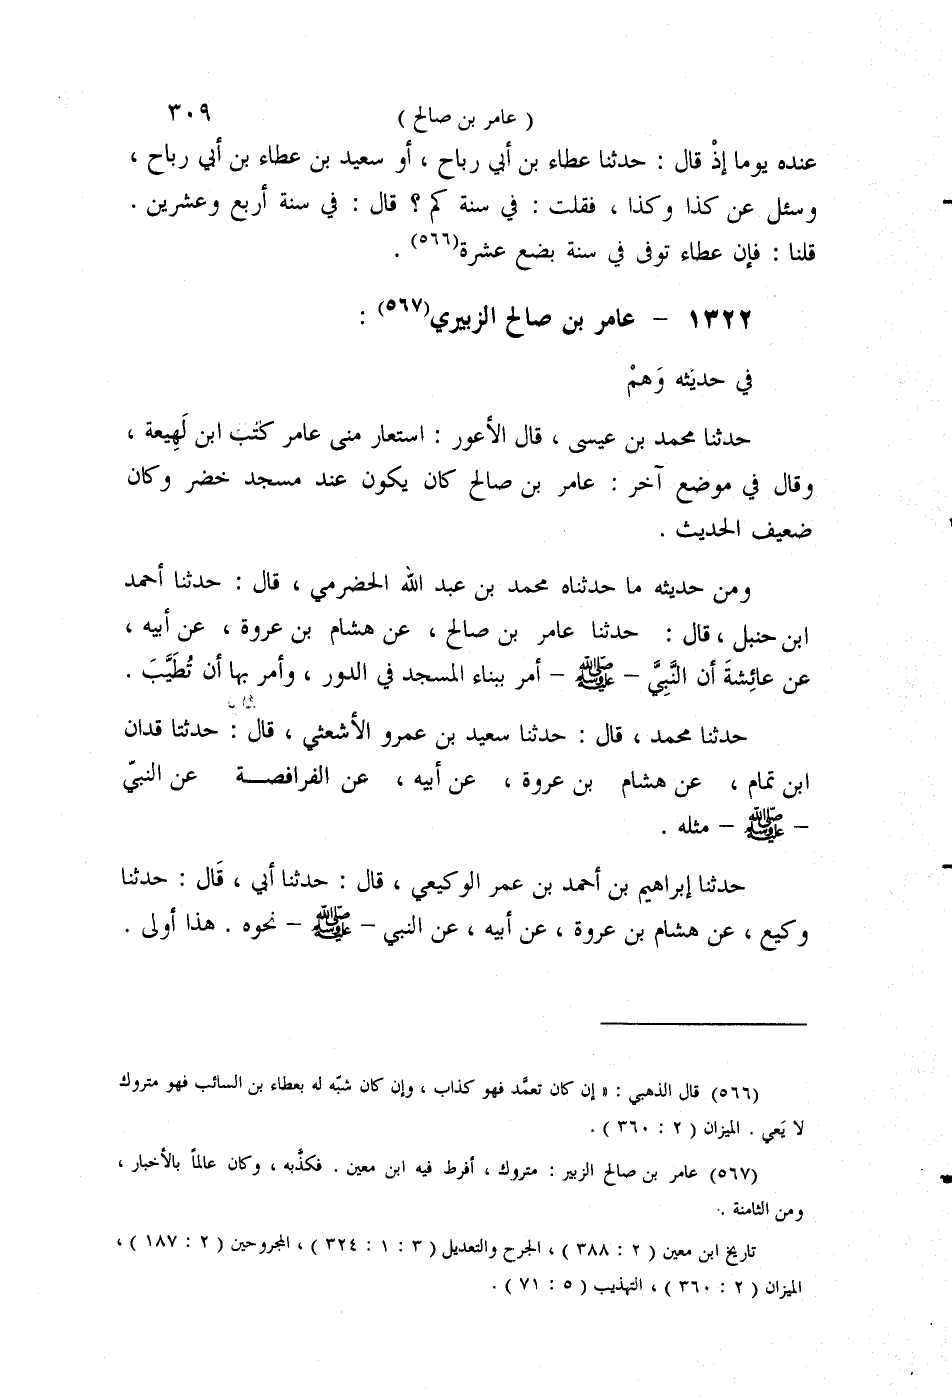 ( عامر بن صالح ) ٣٠٩
عنده يوما إذْ قال : حدثنا عطاء بن أبي رباح ، أو سعيد بن عطاء بن أبي رباح ،
وسئل عن كذا وكذا ، فقلت : في سنة كم ؟ قال : في سنة أربع وعشرين .
قلنا : فإن عطاء توفى في سنة بضع عشرة(٥٦٦) .
١٣٢٢ – عامر بن صالح الزبيري(٥٦٧) :
في حديَثه وَهمْ
حدثنا محمد بن عيسى ، قال الأعور : استعار منى عامر كتُب ابن لَهِيعة ،
وقال في موضع آخر : عامر بن صالح كان يكون عند مسجد خضر وكان
ضعيف الحديث .
ومن حديثه ما حدثناه محمد بن عبد الله الحضرمي ، قال : حدثنا أحمد
ابن حنبل ، قال : حدثنا عامر بن صالح ، عن هشام بن عروة ، عن أبيه ،
عن عائِشةَ أن النَّبِيَّ – ﷺ – أمر ببناء المسجد في الدور ، وأمر بها أن تُطَيَّبَ .
حدثنا محمد ، قال : حدثنا سعيد بن عمرو الأشعثي ، قال : حدثتا قدان
ابن تمام ، عن هشام بن عروة ، عن أبيه ، عن الفرافصة عن النبيّ
– ﷺ – مثله .
حدثنا إبراهيم بن أحمد بن عمر الوكيعي ، قال : حدثنا أبي ، قَال : حدثنا
وكيع ، عن هشام بن عروة ، عن أبيه ، عن النبي – ﷺ – نحوه . هذا أولى .
(٥٦٦) قال الذهبي : « إن كان تعمَّد فهو كذاب ، وإن كان شبّه له بعطاء بن السائب فهو متروك
لا يَعي . الميزان ( ٢ : ٣٦٠ ) .
(٥٦٧) عامر بن صالح الزبير : متروك ، أفرط فيه ابن معين . فكذَّبه ، وكان عالماً بالأخبار ،
ومن الثامنة .
تاريخ ابن معين ( ٢ : ٣٨٨ ) ، الجرح والتعديل ( ٣ : ١ : ٣٢٤ ) ، المجروحين ( ٢ : ١٨٧ ) ،
الميزان ( ٢ : ٣٦٠ ) ، التهذيب ( ٥ : ٧١ ) .